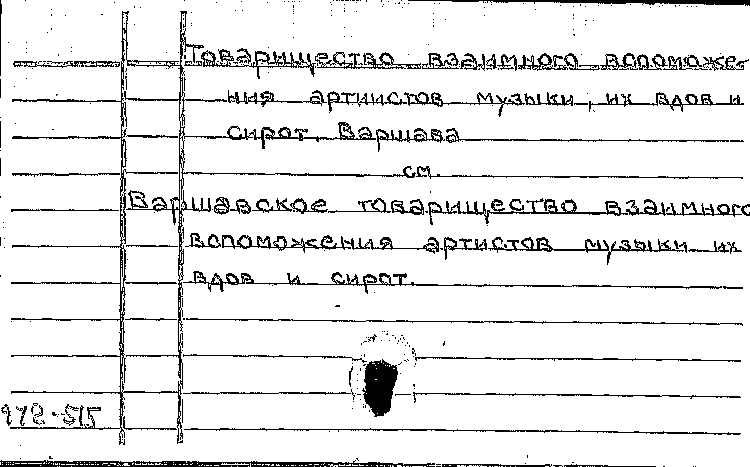 Товарищество взаимного вспоможе-
ния артиистов музыки, их вдов и
сирот. Варшава
см.
Варшавское товарищество взаимного
вспоможения артистов музыки их
вдов и сирот.